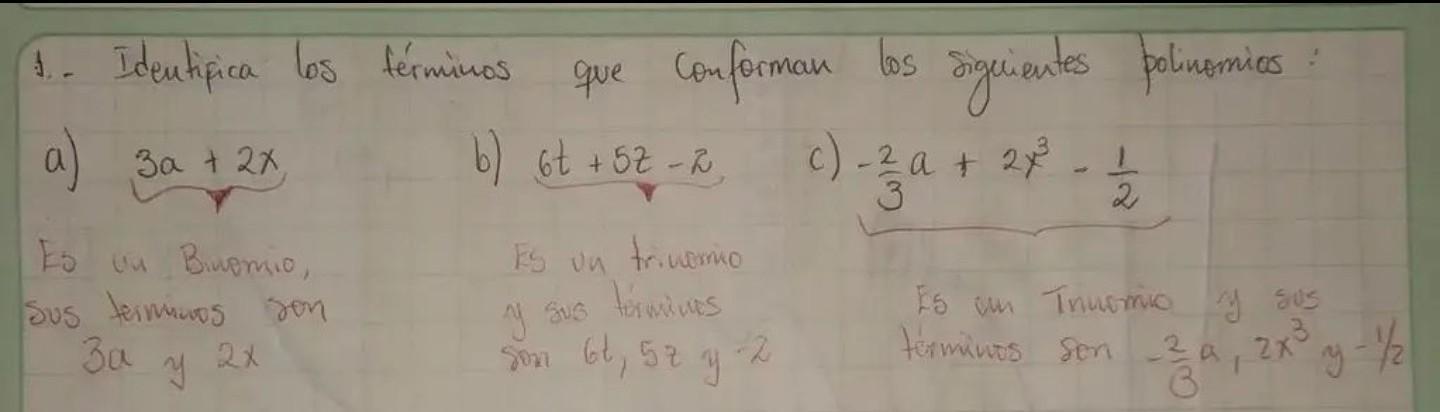 1.- Identifica los términos que conforman los siguientes polinomios:
a) 3a + 2x
b) 6t + 5z - 2
c) -2/3 a + 2x³ - 1/2
Es un Binomio,
sus terminos son
3a y 2x
Es un trinomio
y sus términos
son 6t, 5z y -2
Es un Trinomio y sus
términos son -2/3 a, 2x³ y -1/2